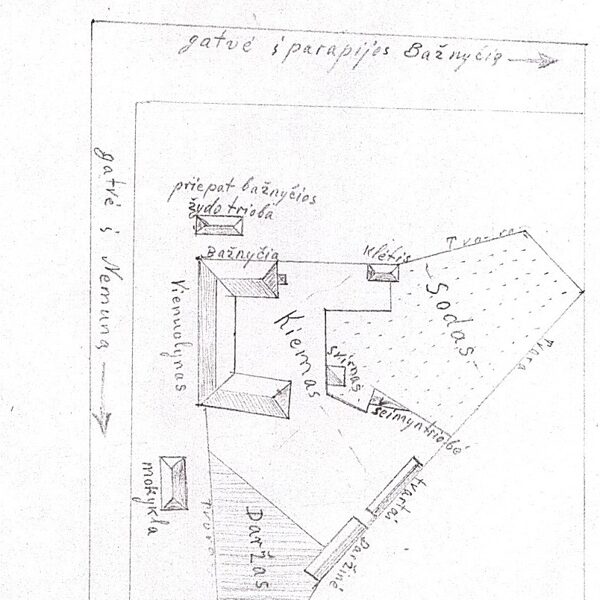 gatvė į parapijos Bažnyčią
gatvė į Nemuną
priepat bažnyčios
žydo trioba
Bažnyčia
Klėtis
Tvora
Sodas
Vienuolynas
Kiemas
Svirnas
Tvara
šeimyntriobė
mokykla
tvartai
Tvora
Daržas
Daržinė